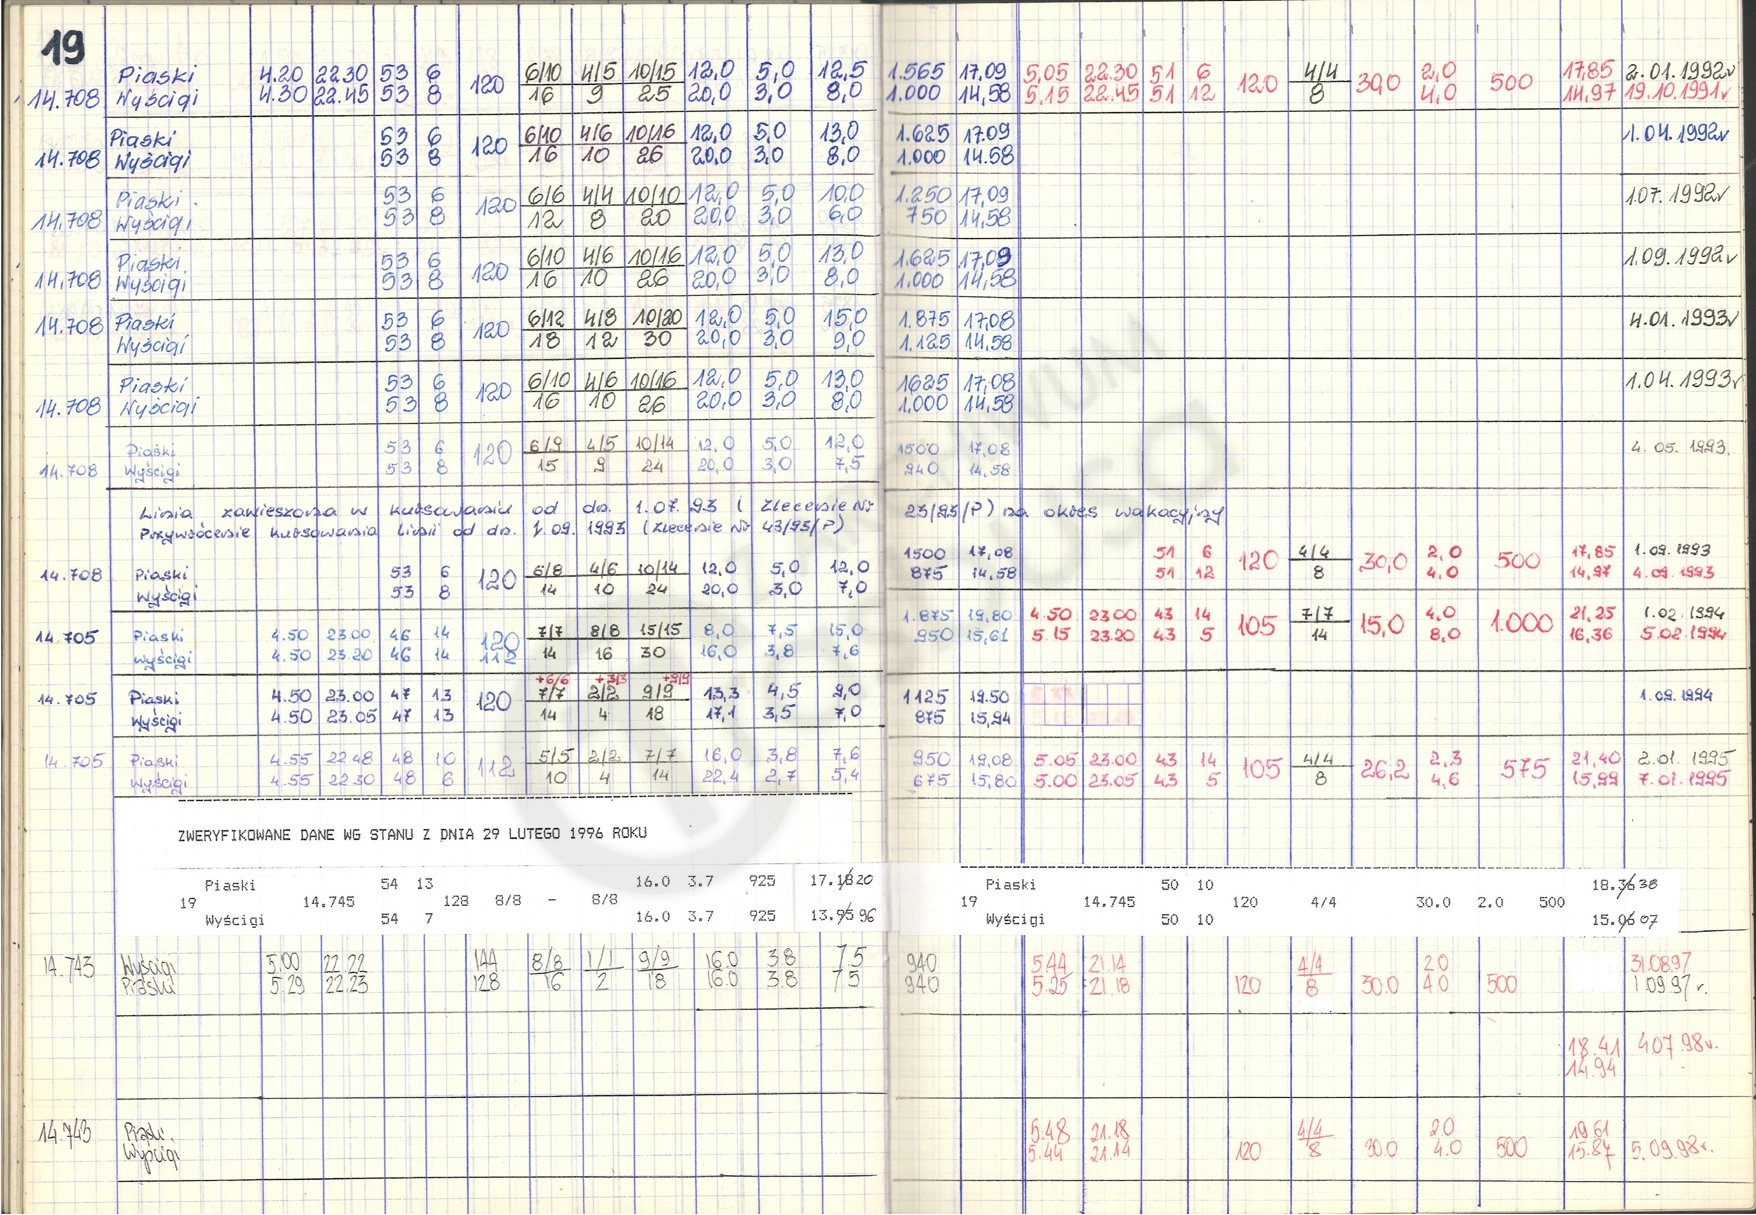 19
Piaski 4.20 22.30 53 6 120 6/10 4/5 10/15 12,0 5,0 12,5 1.565 17,09 5,05 22.30 51 6 120 4/4 30,0 2,0 500 17,85 2.01.1992r
14.708 Wyścigi 4.30 22.45 53 8 16 9 25 20,0 3,0 8,0 1.000 14,58 5,15 22.45 51 12 8 4,0 14,97 19.10.1991r
Piaski 53 6 120 6/10 4/6 10/16 12,0 5,0 13,0 1.625 17.09 1.04.1992r
14.708 Wyścigi 53 8 16 10 26 20,0 3,0 8,0 1.000 14.58
Piaski 53 6 120 6/6 4/4 10/10 12,0 5,0 10,0 1.250 17,09 1.07.1992r
14.708 Wyścigi 53 8 12 8 20 20,0 3,0 6,0 750 14,58
Piaski 53 6 120 6/10 4/6 10/16 12,0 5,0 13,0 1.625 17,09 1.09.1992r
14.708 Wyścigi 53 8 16 10 26 20,0 3,0 8,0 1.000 14,58
14.708 Piaski 53 6 120 6/12 4/8 10/20 12,0 5,0 15,0 1.875 17,08 4.01.1993r
Wyścigi 53 8 18 12 30 20,0 3,0 9,0 1.125 14.58
Piaski 53 6 120 6/10 4/6 10/16 12,0 5,0 13,0 1625 17,08 1.04.1993r
14.708 Wyścigi 53 8 16 10 26 20,0 3,0 8,0 1.000 14.58
Piaski 53 6 120 6/9 4/5 10/14 12,0 5,0 12,0 1500 17,08 4.05.1993.
14.708 Wyścigi 53 8 15 9 24 20,0 3,0 7,5 940 14,58
Linia zawieszona w kursowaniu od dn. 1.07.93 ( Zlecenie Nr 23/93/P) na okres wakacyjny
Przywrócenie kursowania linii od dn. 1.09.1993 (zlecenie Nr 43/93/P)
14.708 Piaski 53 6 120 6/8 4/6 10/14 12,0 5,0 12,0 1500 17,08 51 6 120 4/4 30,0 2,0 500 17,85 1.09.1993
Wyścigi 53 8 14 10 24 20,0 3,0 7,0 875 14.58 51 12 8 4,0 14,97 4.09.1993
14.705 Piaski 4.50 23.00 46 14 120 7/7 8/8 15/15 8,0 7,5 15,0 1.875 19,80 4.50 23.00 43 14 105 7/7 15,0 4,0 1.000 21,25 1.02.1994
Wyścigi 4.50 23.20 46 14 112 14 16 30 16,0 3,8 7,6 950 15,61 5.15 23.20 43 5 14 8,0 16,36 5.02.1994
+6/6 +3/3 +9/9
14.705 Piaski 4.50 23.00 47 13 120 7/7 2/2 9/9 13,3 4,5 9,0 1125 19.50 1.09.1994
Wyścigi 4.50 23.05 47 13 14 4 18 17,1 3,5 7,0 875 15,94
14.705 Piaski 4.55 22.48 48 10 112 5/5 2/2 7/7 16,0 3,8 7,6 950 19,08 5.05 23.00 43 14 105 4/4 26,2 2,3 575 21,40 2.01.1995
Wyścigi 4.55 22.30 48 6 10 4 14 22,4 2,7 5,4 675 15,80 5.00 23.05 43 5 8 4,6 15,99 7.01.1995
ZWERYFIKOWANE DANE WG STANU Z DNIA 29 LUTEGO 1996 ROKU
Piaski 54 13 16.0 3.7 925 17.18 20 Piaski 50 10 18.36 38
19 14.745 128 8/8 - 8/8 19 14.745 120 4/4 30.0 2.0 500
Wyścigi 54 7 16.0 3.7 925 13.95 96 Wyścigi 50 10 15.06 07
14.743 Wyścigi 5.00 22.22 144 8/8 1/1 9/9 16.0 3.8 7.5 940 5.44 21.14 4/4 2.0 31.08.97
Piaski 5.29 22.23 128 16 2 18 16.0 3.8 7.5 940 5.25 21.18 120 8 30.0 4.0 500 1.09.97 r.
18.41 4.07.98r.
14.94
14.743 Piaski. 5.48 21.18 4/4 2.0 19.61
Wyścigi 5.44 21.14 120 8 30.0 4.0 500 15.87 5.09.98r.